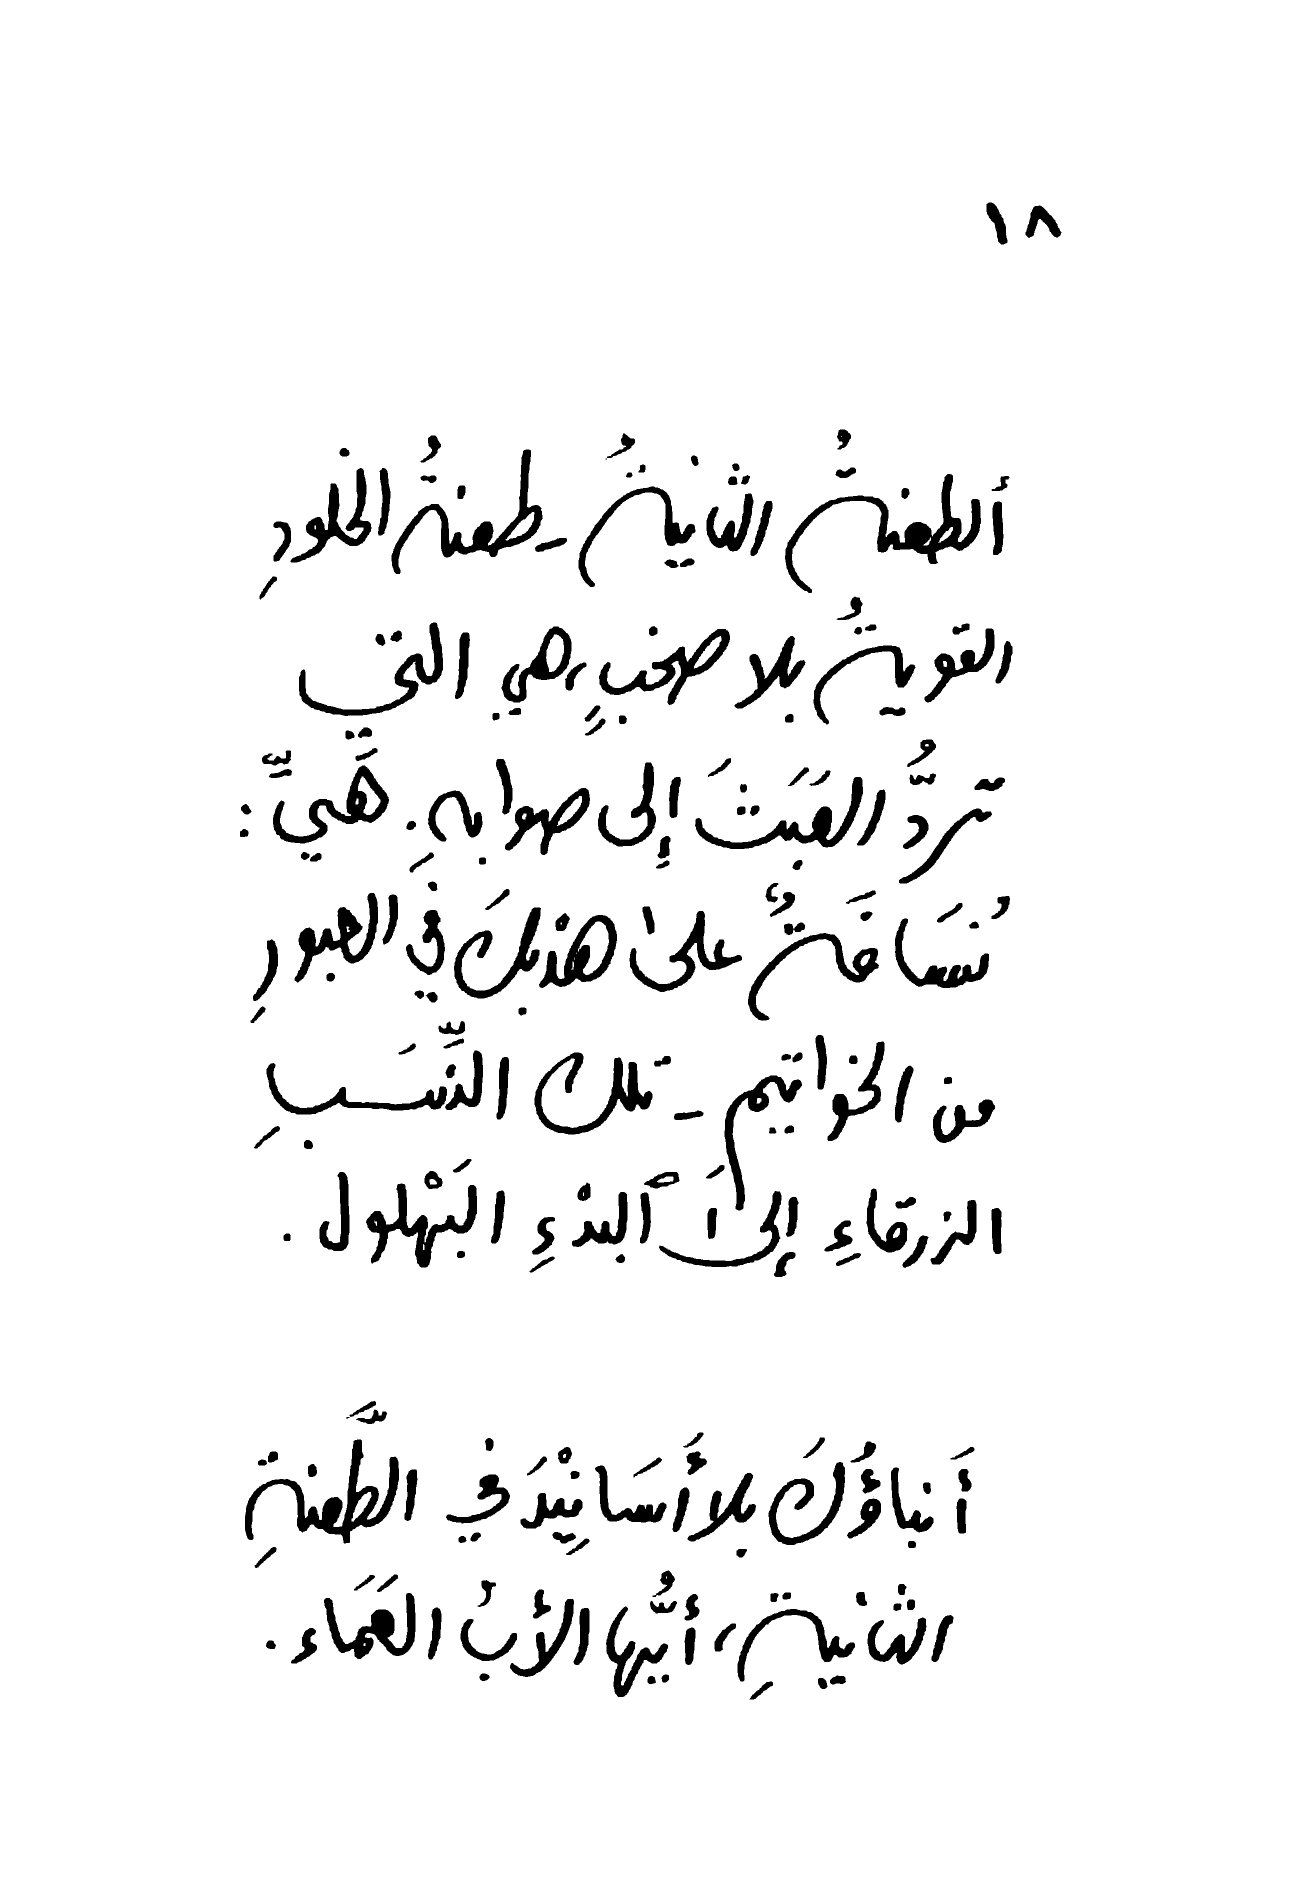 ١٨
ألطعنةُ الثانيةُ - طعنةُ الخلودِ
القويةُ بلا صخبٍ، هي التي
تردُّ العَبَثَ إلى صوابه. هَيَّ:
نُسَاخَةٌ على هذبكَ في العبورِ
من الخواتيم - تلك النِّسَبِ
الزرقاءِ إلى ٱلبدْءِ البَهْلول.
أَنباؤُكَ بلا أَسَانِيْدَ في الطَّعنةِ
الثانيةِ، أيُّها الأبُ العَمَاء.